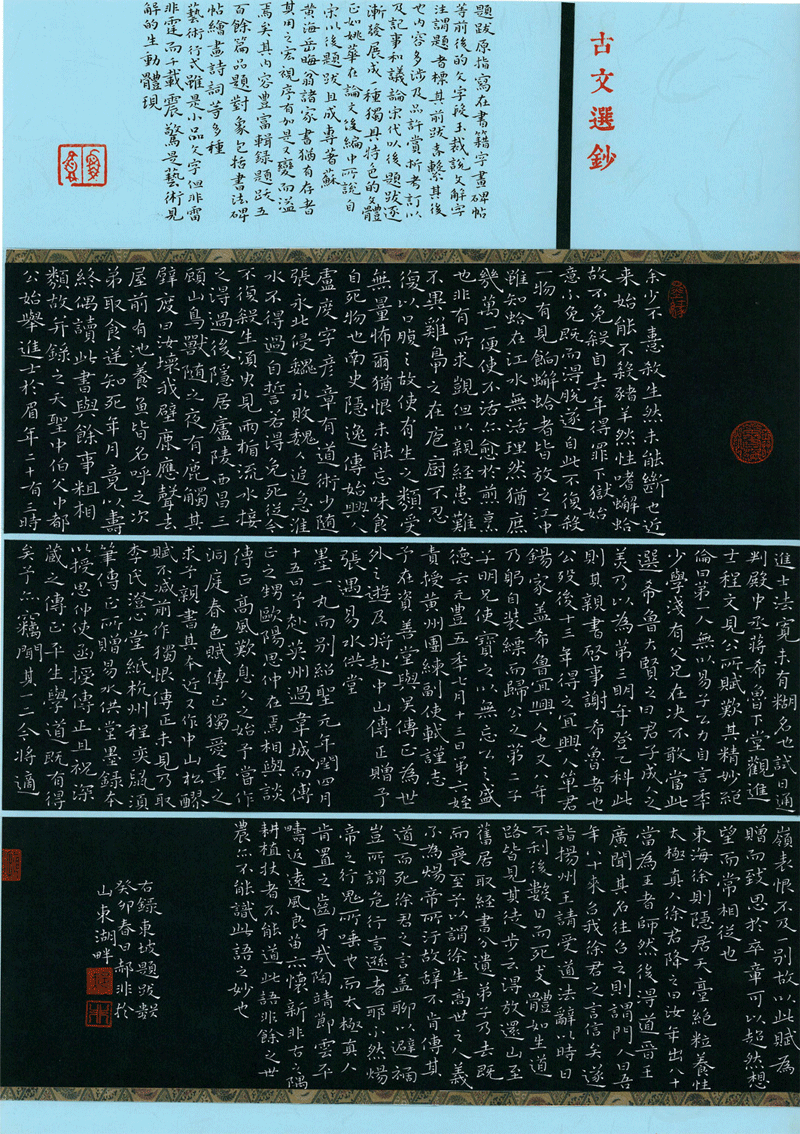 古文選鈔
題跋原指寫在書籍字畫碑帖
等前後的文字段玉裁說文解字
注謂題者標其前跋者繫其後
也內容多涉及品評賞析考訂以
及記事和議論宋代以後題跋逐
漸發展成一種獨具特色的文體
正如姚華在論文後編中所說自
宋以後題跋且成專書蘇
黃海岳晦翁諸家書猶有存者
其用之宏視序有如是又變而溢
焉矣其內容豐富輯錄題跋五
百餘篇品題對象包括書法碑
帖繪畫詩詞等多種
藝術行式雖是小品文字但非雷
非霆而千載震驚是藝術見
解的生動體現
余少不憙殺生然未能斷也近
來始能不殺豬羊然性嗜蠏蛤
故不免殺自去年得罪下獄始
意不免既而得脫遂自此不復殺
一物有見餉蠏蛤者皆放之江中
雖知蛤在江水無活理然猶庶
幾萬一便使不活亦愈於煎烹
也非有所求覬但以親經患難
不異雞鳧之在庖廚不忍
復以腹之故使有生之類受
無量怖爾猶恨未能忘味食
自死物也南史隱逸傳始興人
盧度字彥章有道術少隨
張永北侵魏永敗魏人追急淮
水不得過自誓若得免死從今
不復殺生須臾見兩楯流水接
之得過後隱居廬陵西昌三
顧山鳥獸隨之夜有鹿觸其
壁度曰汝壞我壁鹿應聲去
屋前有池養魚皆名呼之次
弟取食逆知死年月竟以壽
終偶讀此書與餘事粗相
類故并錄之天聖中伯父中都
公始舉進士於眉年十有三時
進士法寬未有糊名也試日通
判殿中丞蔣希魯下堂觀進
士程文見公所賦歎其精妙絕
倫曰第一人無以易子公力自言年
少學淺有父兄在決不敢當此
選希魯大賢之曰君子成人之
美乃以為第三明年登乙科此
則其親書啓事謝希魯者也
公歿後十三年得之宜興人單君
錫家蓋希魯宜興人也又八年
乃躬自裝縹而歸公之第二子
子明兄使寶之以無忘公之盛
德云元豐五年七月十三日第二姪
責授黃州團練副使軾謹志
予在資善堂與吳傳正為世
外之遊及將赴中山傳正贈予
張遇易水供堂
墨一丸而別紹聖元年閏四月
十五日予赴英州過韋城而傳
正之甥歐陽思仲在焉相與談
傳正高風歎息久之始予嘗作
洞庭春色賦傳正獨愛重之
求予親書其本近又作中山松醪
賦不減前作獨恨傳正未見乃取
李氏澄心堂紙杭州程奕鼠鬚
筆傳正所贈易水供堂墨錄本
以授思仲使面授傳正且祝深
藏之傳正平生學道既有得
矣予亦竊聞其一二今將適
嶺表恨不及一別故以此賦為
贈而致思於卒章可以超然想
望而常相從也
東海徐則隱居天臺絕粒養性
太極真人徐君降之曰汝年出八十
當為王者師然後得道晉王
廣聞其名往召之則謂門人曰吾
年八十來召我徐君之言信矣遂
詣揚州王請受道法辭以時日
不利後數日而死支體如生道
路皆見其徒步云得放還山至
舊居取經書分遺弟子乃去既
而喪至予以謂徐生高世之人義
不為煬帝所汙故辭不肯傳其
道而死徐君之言蓋聊以避禍
豈所謂危行言遜者耶不然煬
帝之行鬼所唾也而太極真人
肯置之齒牙哉陶靖節云平
疇返遠風良苗亦懷新非古之隅
耕植扶者不能道此語非餘之世
農亦不能識此語之妙也
右錄東坡題跋數
癸卯春日郝非於
山東湖畔